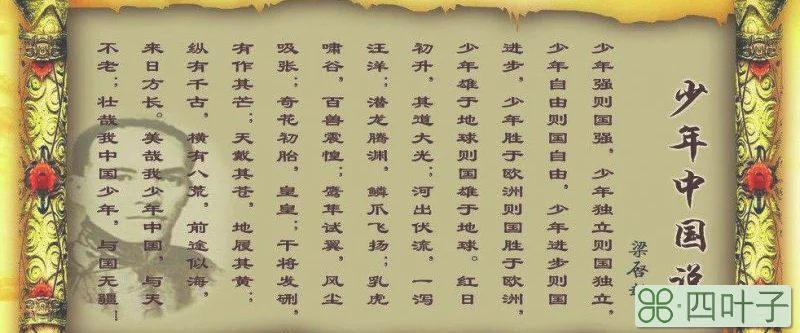 少年中国说
梁启
少年强则国强，少年独立则国独立，
少年自由则国自由，少年进步则国
进步，少年胜于欧洲则国胜于欧洲，
少年雄于地球则国雄于地球。红日
初升，其道大光；河出伏流，一泻
汪洋；潜龙腾渊，鳞爪飞扬；乳虎
啸谷，百兽震惶；鹰隼试翼，风尘
吸张；奇花初胎，皇皇；干将发硎，
有作其芒；天戴其苍，地履其黄；
纵有千古，横有八荒，前途似海，
来日方长。美哉我少年中国，与天
不老；壮哉我中国少年，与国无疆！
四叶子